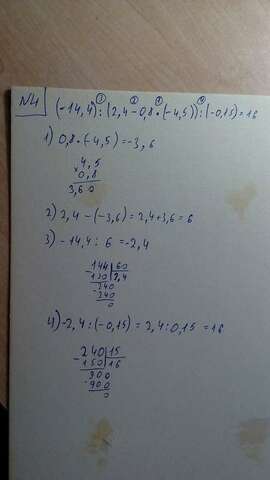 №4 (-14,4):(2,4-0,8•(-4,5)):(-0,15)=16
③ ② ① ④
1) 0,8•(-4,5)=-3,6
4,5
× 0,8
3,60
2) 2,4-(-3,6)=2,4+3,6=6
3) -14,4: 6=-2,4
-144|60
120|2,4
240
-240
0
4) -2,4:(-0,15)=2,4:0,15=16
-240|15
150|16
900
-900
0